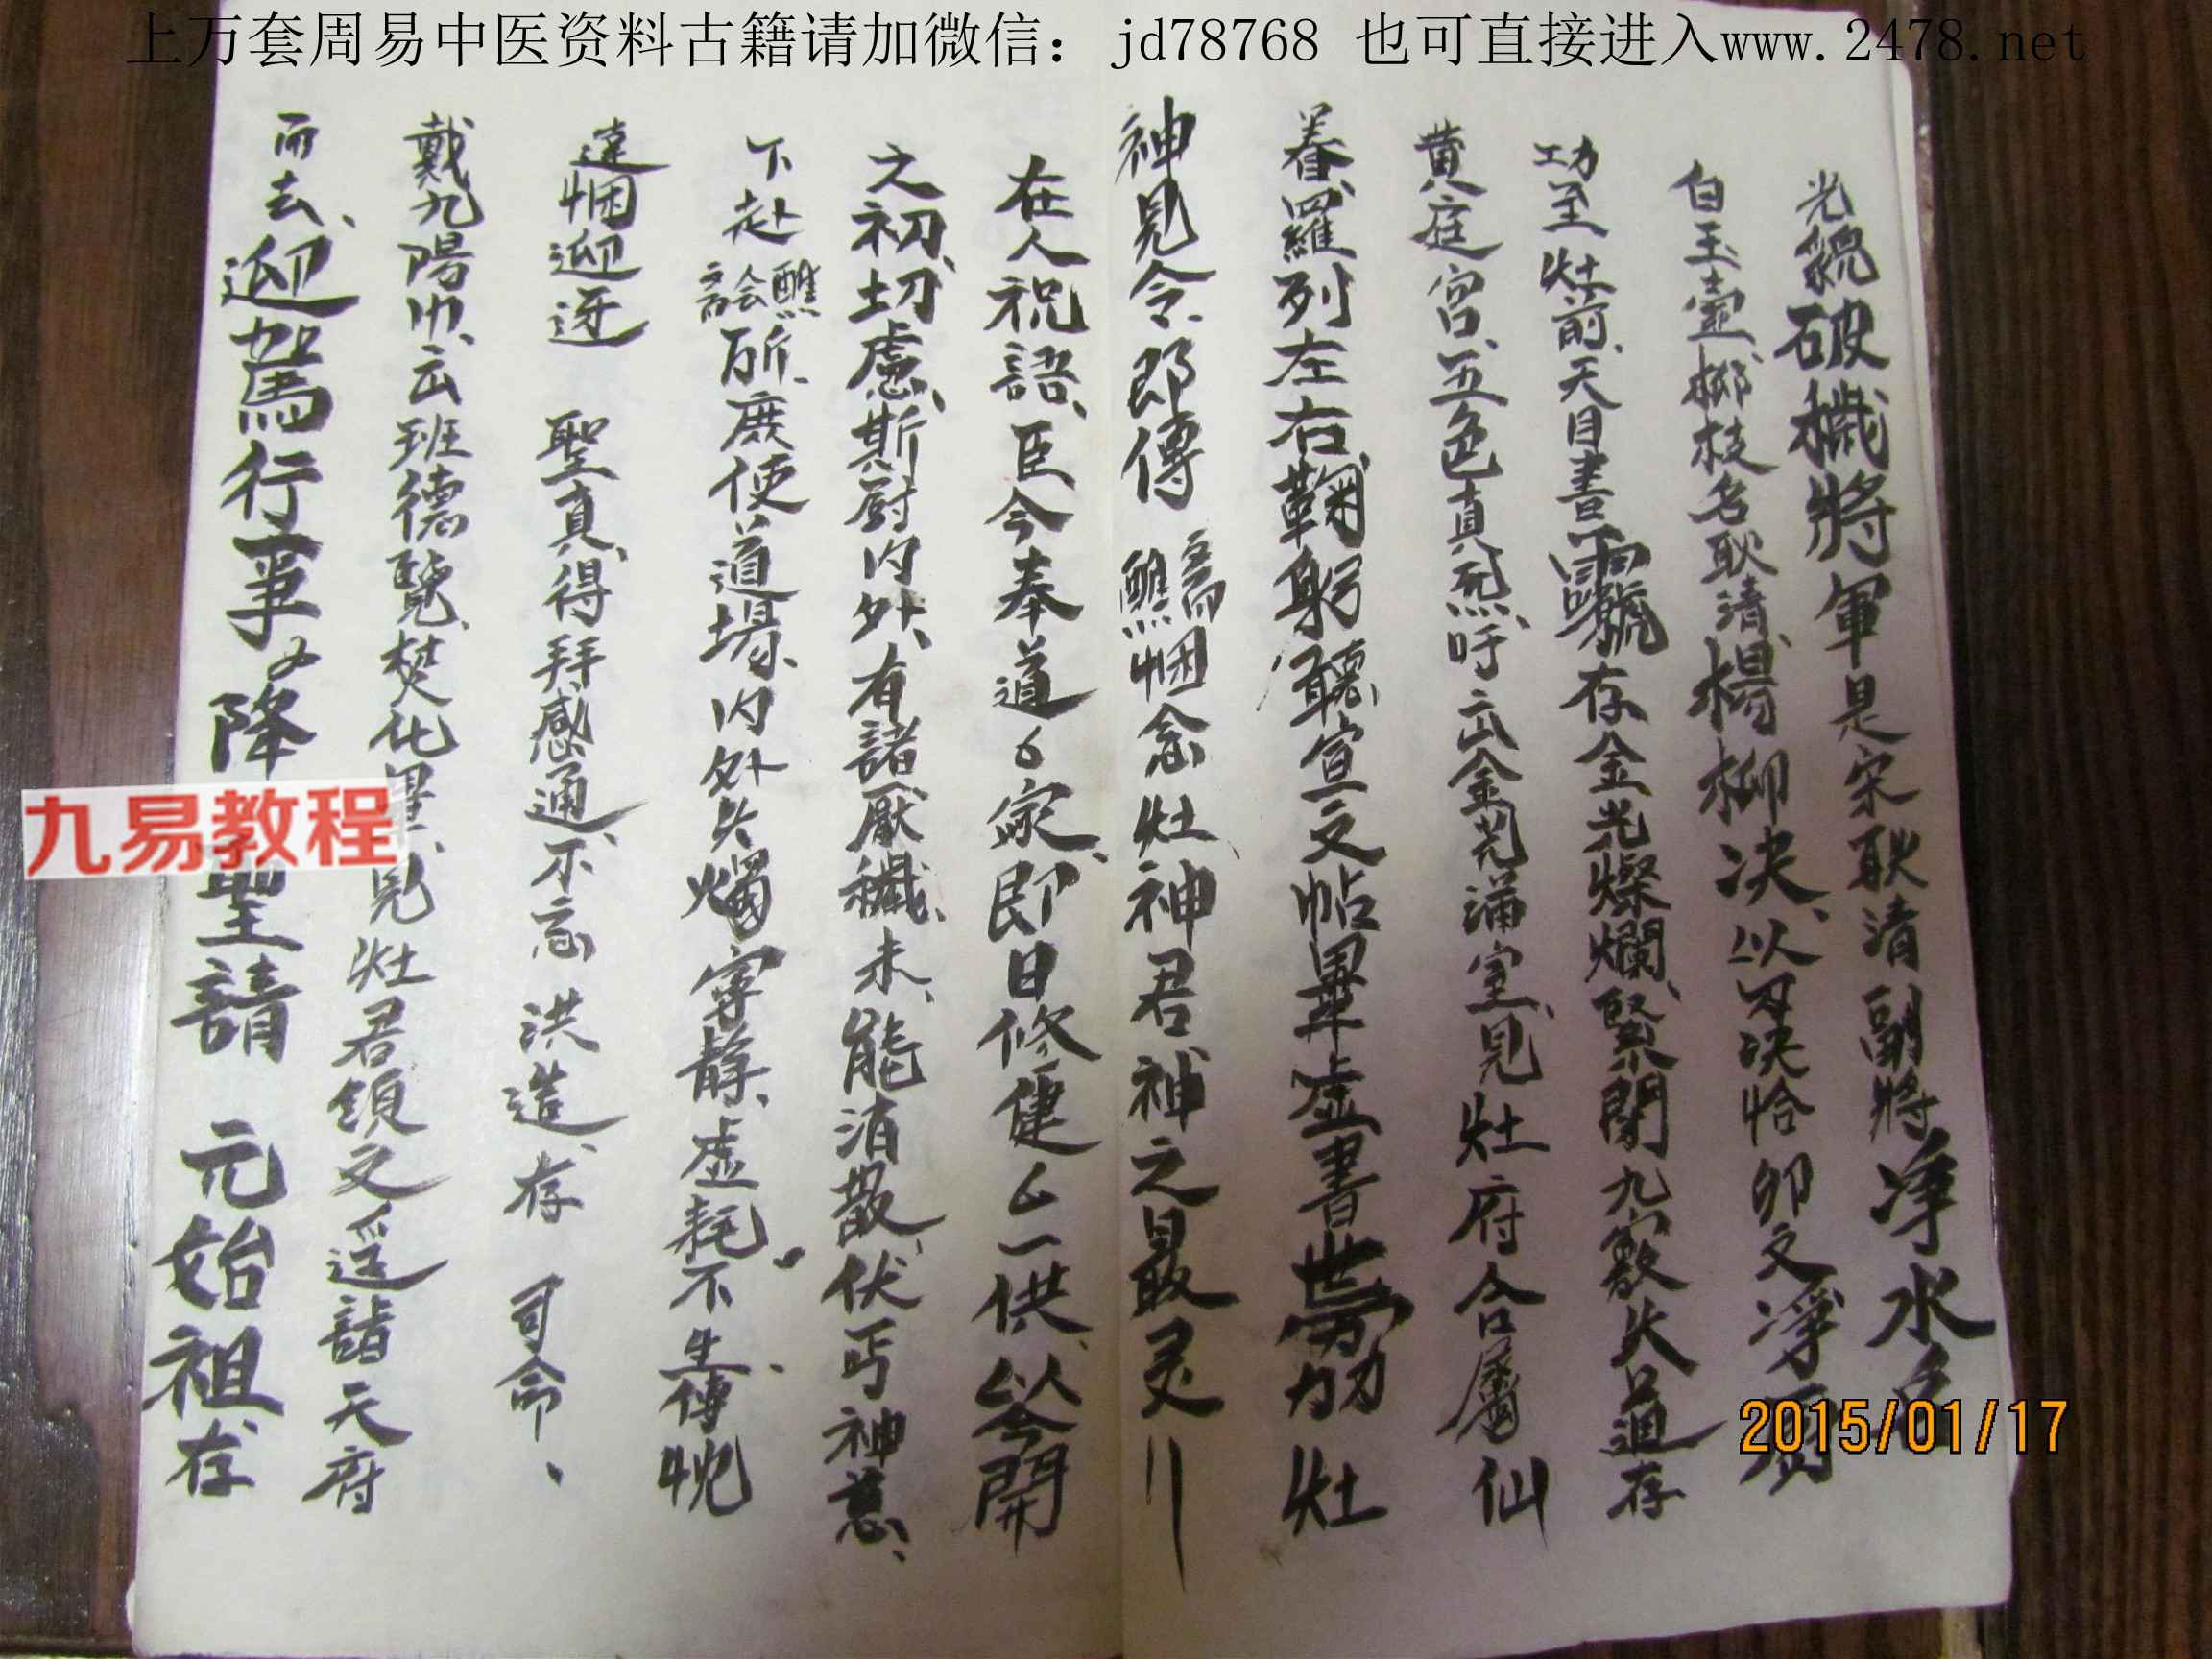 上万套周易中医资料古籍请加微信： jd78768 也可直接进入www.2478.net
光貌破穢將軍是宋耿清副將淨水名
白玉灵柳枝名耿清楊柳决以决恰卯文淨
功至灶前天目書存金光燦爛緊閉九竅失存
黄庭宮五色真炁呼云金光滿室見灶府合属仙
眷羅列左右鞠躬聽宣文帖畢虚書灶
神見令即傳焉醮悃念灶神君神之最灵
在人祝語臣今奉道家即日修建一供開
之初切慮斯厨内外有諸厭穢未能消散伏丐神慈
下赴醮会所庶使道場内外火燭寧静虚耗不生傳
達悃迎迓 聖真得拜感通不忘洪造存 司命
戴九陽巾云班德覽焚化畢見灶君領文遥詣天府
而去迎駕行事降聖請 元始祖存
九易教程
2015/01/17